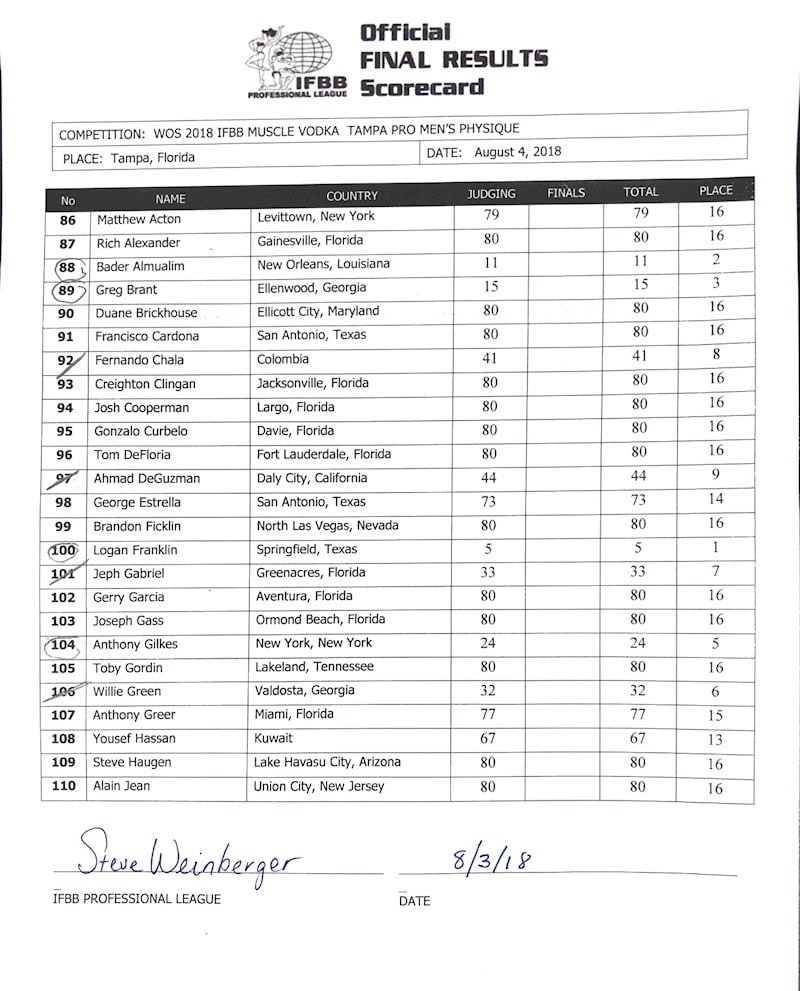 Official
FINAL RESULTS
Scorecard
IFBB
PROFESSIONAL LEAGUE
COMPETITION: WOS 2018 IFBB MUSCLE VODKA TAMPA PRO MEN'S PHYSIQUE
PLACE: Tampa, Florida DATE: August 4, 2018
No NAME COUNTRY JUDGING FINALS TOTAL PLACE
86 Matthew Acton Levittown, New York 79 79 16
87 Rich Alexander Gainesville, Florida 80 80 16
88 Bader Almualim New Orleans, Louisiana 11 11 2
89 Greg Brant Ellenwood, Georgia 15 15 3
90 Duane Brickhouse Ellicott City, Maryland 80 80 16
91 Francisco Cardona San Antonio, Texas 80 80 16
92 Fernando Chala Colombia 41 41 8
93 Creighton Clingan Jacksonville, Florida 80 80 16
94 Josh Cooperman Largo, Florida 80 80 16
95 Gonzalo Curbelo Davie, Florida 80 80 16
96 Tom DeFloria Fort Lauderdale, Florida 80 80 16
97 Ahmad DeGuzman Daly City, California 44 44 9
98 George Estrella San Antonio, Texas 73 73 14
99 Brandon Ficklin North Las Vegas, Nevada 80 80 16
100 Logan Franklin Springfield, Texas 5 5 1
101 Jeph Gabriel Greenacres, Florida 33 33 7
102 Gerry Garcia Aventura, Florida 80 80 16
103 Joseph Gass Ormond Beach, Florida 80 80 16
104 Anthony Gilkes New York, New York 24 24 5
105 Toby Gordin Lakeland, Tennessee 80 80 16
106 Willie Green Valdosta, Georgia 32 32 6
107 Anthony Greer Miami, Florida 77 77 15
108 Yousef Hassan Kuwait 67 67 13
109 Steve Haugen Lake Havasu City, Arizona 80 80 16
110 Alain Jean Union City, New Jersey 80 80 16
Steve Weinberger 8/3/18
IFBB PROFESSIONAL LEAGUE DATE